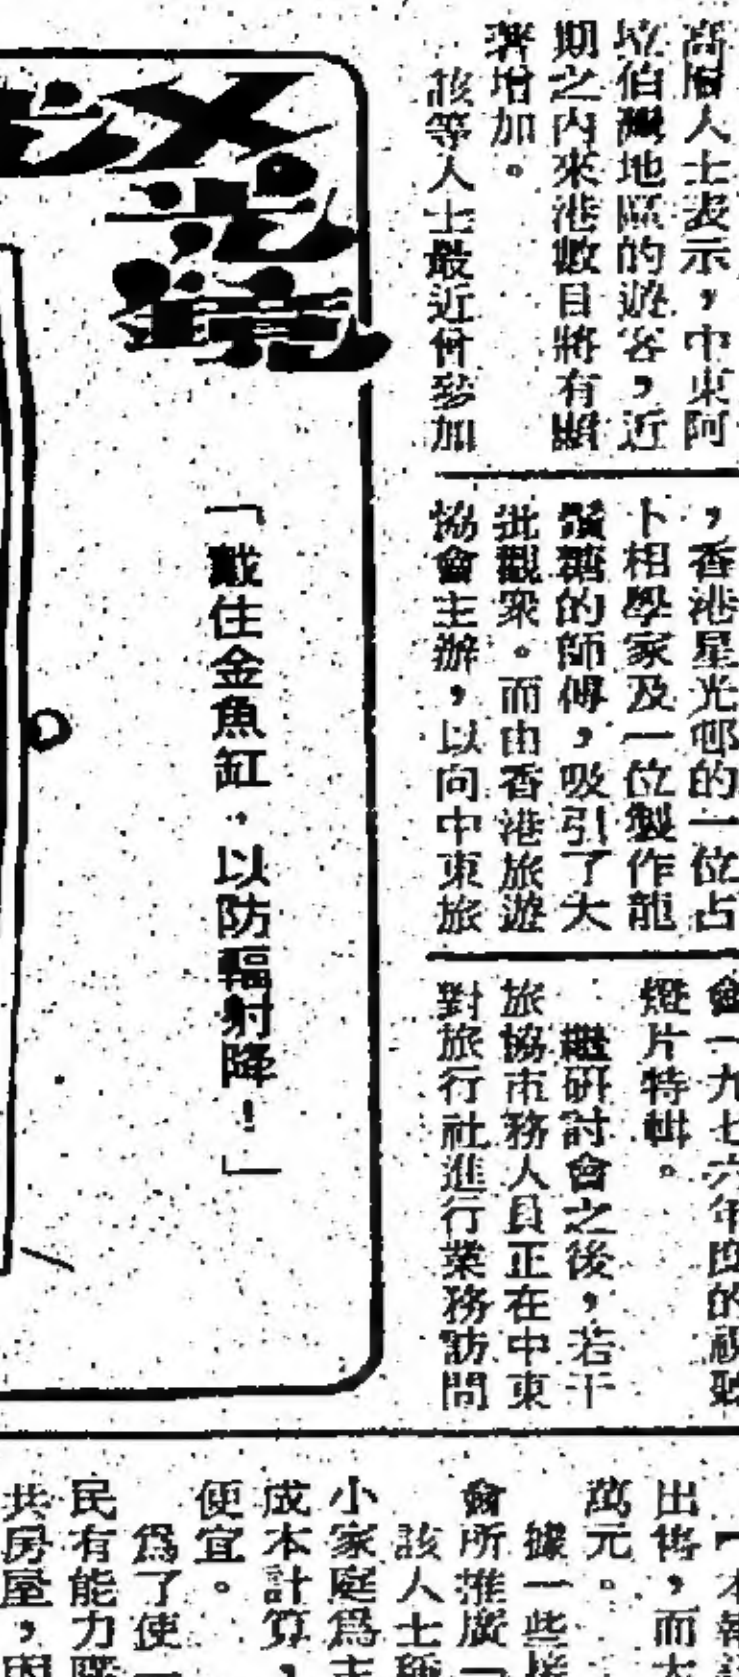 高層人士表示，中東阿
拉伯灣地區的遊客，近
期之內來港數目將有顯
著增加。
該等人士最近曾參加
，香港星光邨的一位占
卜相學家及一位製作龍
鬚糖的師傅，吸引了大
批觀衆。而由香港旅遊
協會主辦，以向中東旅
會一九七六年度的視聽
燈片特輯。
繼研討會之後，若干
旅協市務人員正在中東
對旅行社進行業務訪問
X
光
鏡
「戴住金魚缸，以防輻射降！」
【本報
出售，而
萬元。
據一些
會所推廣「
該人士
小家庭爲主
成本計算，
便宜。
爲了使一
民有能力
共房屋，因